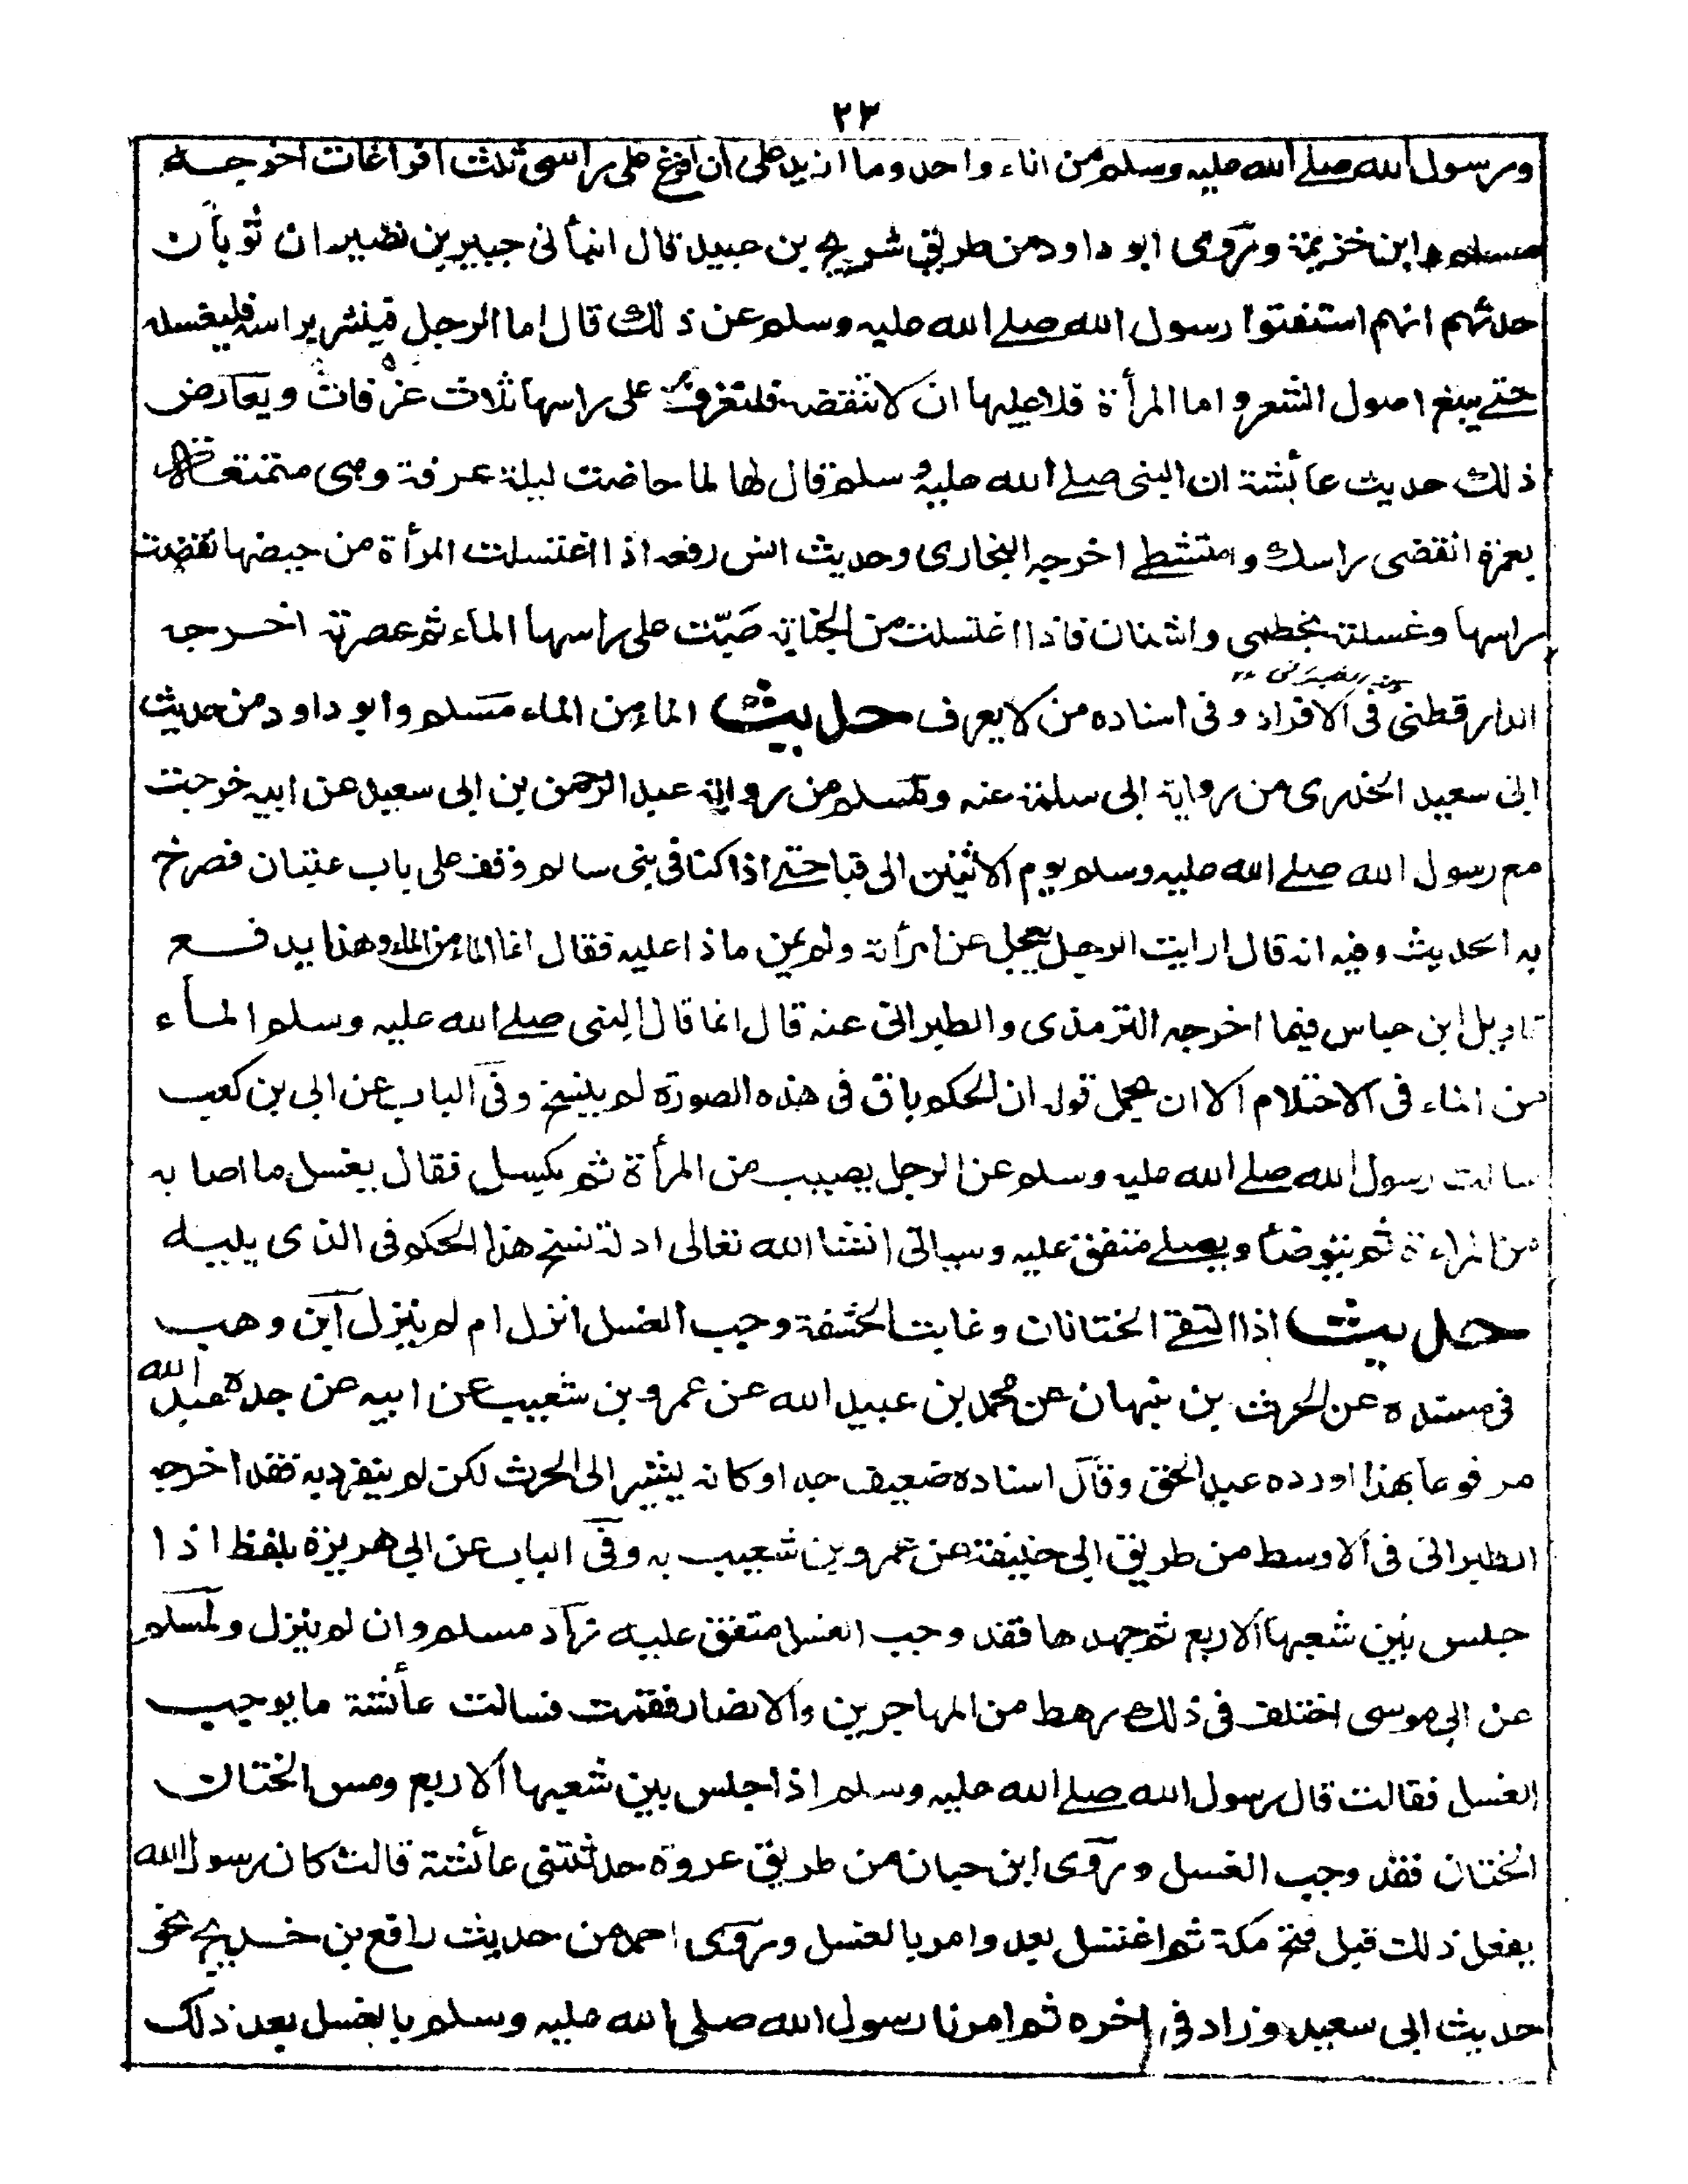 ٢٣
ورسول الله صلے الله عليه وسلم من اناء واحد وما ازيد على ان افرغ على راسى ثلث افراغات اخرجه
مسلم وابن خزيمة وروى ابو داود من طريق شريح بن عبيد قال انبأنى جبير بن نضير ان ثوبان
حدثهم انهم استفتوا رسول الله صلے الله عليه وسلم عن ذلك قال اما الرجل فينشر راسه فليغسله
حتے يبلغ اصول الشعر واما المرأة فلا عليها ان لا تنقضه فلتغرف على راسها ثلاث غرفات ويعارض
ذلك حديث عائشة ان النبى صلے الله عليه وسلم قال لها لما حاضت ليلة عرفة وهى متمتعة
بعمرة انقضى راسك وامتشطى اخرجه البخارى وحديث انس رفعه اذا اغتسلت المرأة من حيضها نقضت
راسها وغسلته بخطمى واشنان فاذا اغتسلت من الجنابة صبّت على راسها الماء ثم عصرته اخرجه
الدارقطنى فى الافراد وفى اسناده من لا يعرف حديث الماء من الماء مسلم وابو داود من حديث
ابى سعيد الخدرى من رواية ابى سلمة عنه ولمسلم من رواية عبد الرحمن بن ابى سعيد عن ابيه خرجت
مع رسول الله صلے الله عليه وسلم يوم الاثنين الى قبا حتے اذا كنا فى بنى سالم وقف على باب عتبان فصرخ
به الحديث وفيه انه قال ارايت الرجل يعجل عن امرأته ولم يمن ماذا عليه فقال انما الماء من الماء وهذا يدفع
تاويل ابن عباس فيما اخرجه الترمذى والطبرانى عنه قال انما قال النبى صلے الله عليه وسلم الماء
من الماء فى الاحتلام الا ان يحمل قوله ان الحكم باق فى هذه الصورة لم ينسخ وفى الباب عن ابى بن كعب
سالت رسول الله صلے الله عليه وسلم عن الرجل يصيب من المرأة ثم يكسل فقال يغسل ما اصابه
من المراءة ثم يتوضأ ويصلے متفق عليه وسياتى انشا الله تعالى ادلة نسخ هذا الحكم فى الذى يليه
حديث اذا التقے الختانان وغابت الحشفة وجب الغسل انزل ام لم ينزل ابن وهب
فى مسنده عن الحرث بن نبهان عن محمد بن عبيد الله عن عمرو بن شعيب عن ابيه عن جده عبد الله
مرفوعا بهذا اورده عبد الحق وقال اسناده ضعيف جدا وكانه يشير الى الحرث لكن لم ينفرد به فقد اخرجه
الطبرانى فى الاوسط من طريق ابى حنيفة عن عمرو بن شعيب به وفى الباب عن ابى هريرة بلفظ اذا
جلس بين شعبها الاربع ثم جهدها فقد وجب الغسل متفق عليه زاد مسلم وان لم ينزل ولمسلم
عن ابى موسى اختلف فى ذلك رهط من المهاجرين والانصار فقمت فسالت عائشة ما يوجب
الغسل فقالت قال رسول الله صلے الله عليه وسلم اذا جلس بين شعبها الاربع ومس الختان
الختان فقد وجب الغسل وروى ابن حبان من طريق عروة حدثتنى عائشة قالت كان رسول الله
يفعل ذلك قبل فتح مكة ثم اغتسل بعد وامر بالغسل وروى احمد من حديث رافع بن خديج نحو
حديث ابى سعيد وزاد فى اخره ثم امرنا رسول الله صلى الله عليه وسلم بالغسل بعد ذلك